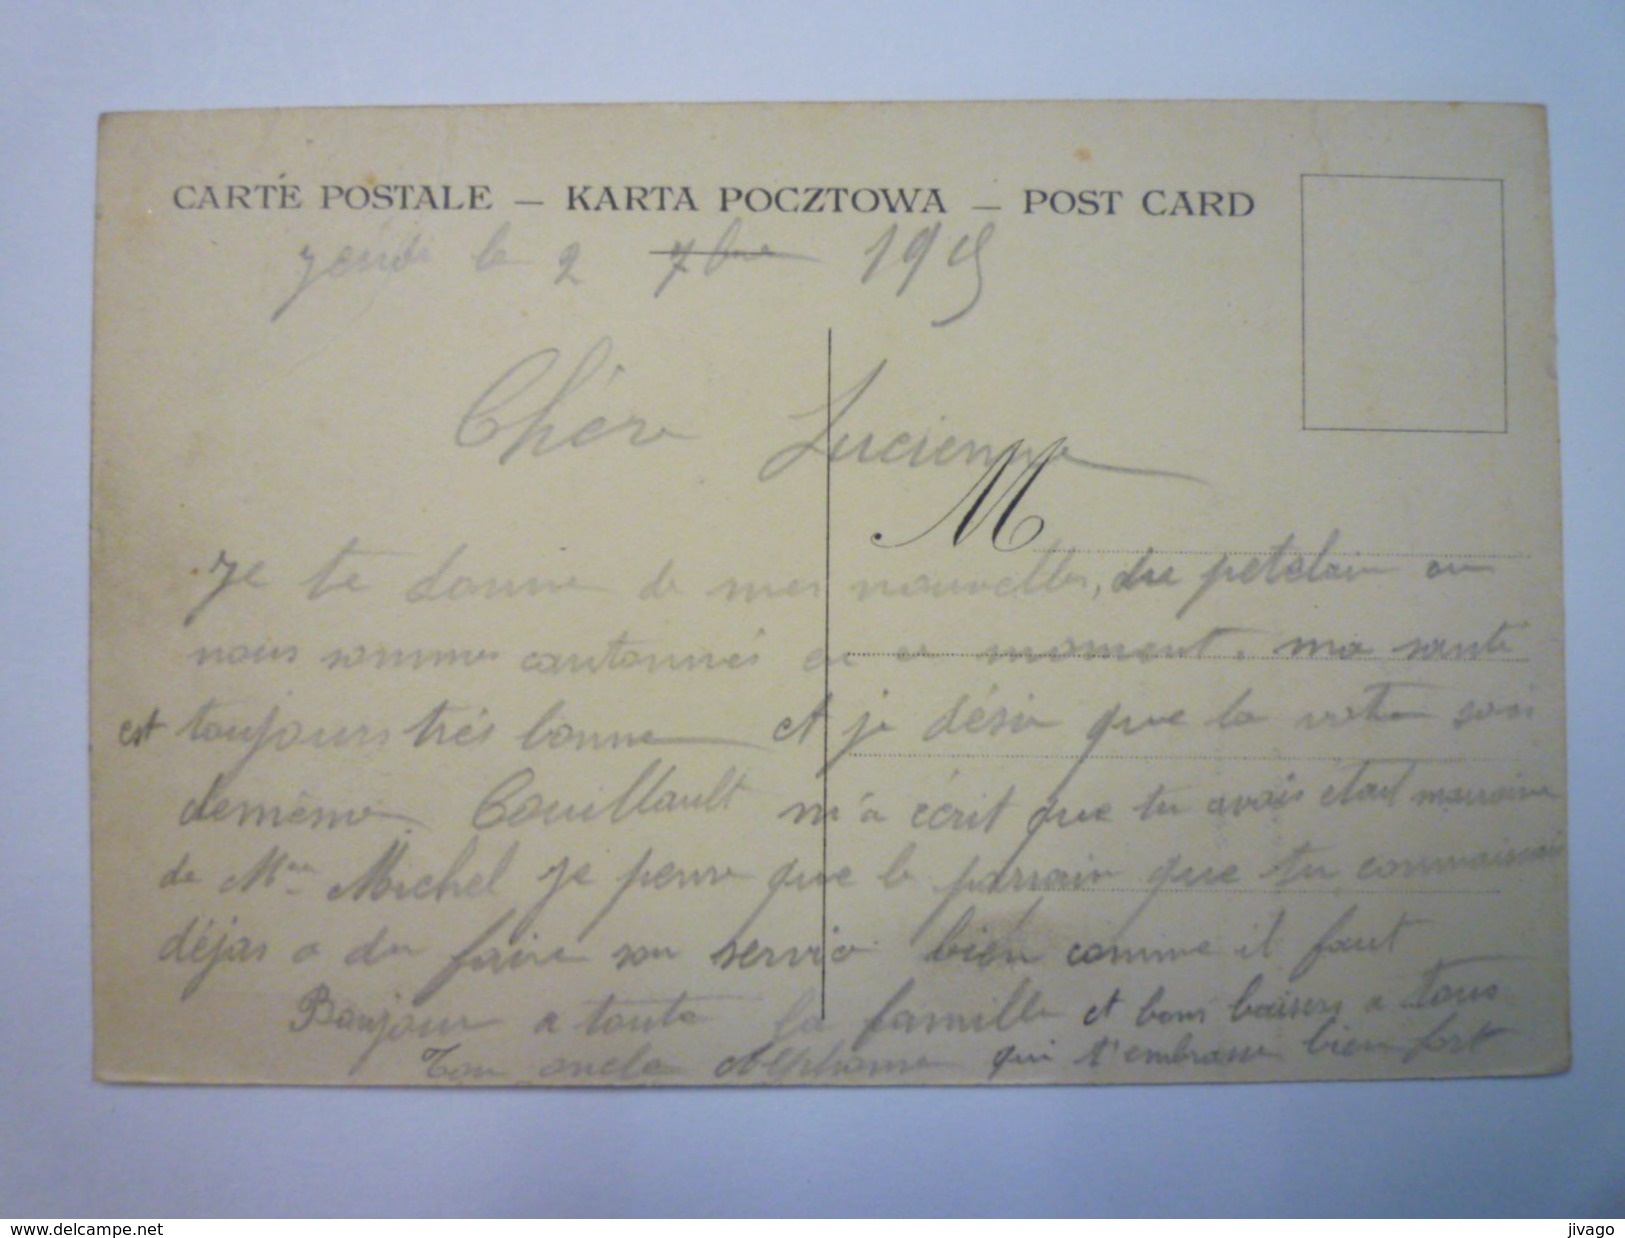 CARTE POSTALE — KARTA POCZTOWA — POST CARD
jeudi le 2 7bre 1915
Chère Lucienne
M
Je te donne de mes nouvelles, du petelain ou
nous sommes cantonnés en ce moment. ma santé
est toujours très bonne et je désire que la votre soit
demème Couillault m'a écrit que tu avais était marraine
de Mme Michel je pense que le parrain que tu connaissais
déjas a du faire son service bien comme il faut
Bonjour a toute la famille et bons baisers a tous
Ton oncle Alphonse qui t'embrasse bien fort
www.delcampe.net
jivago